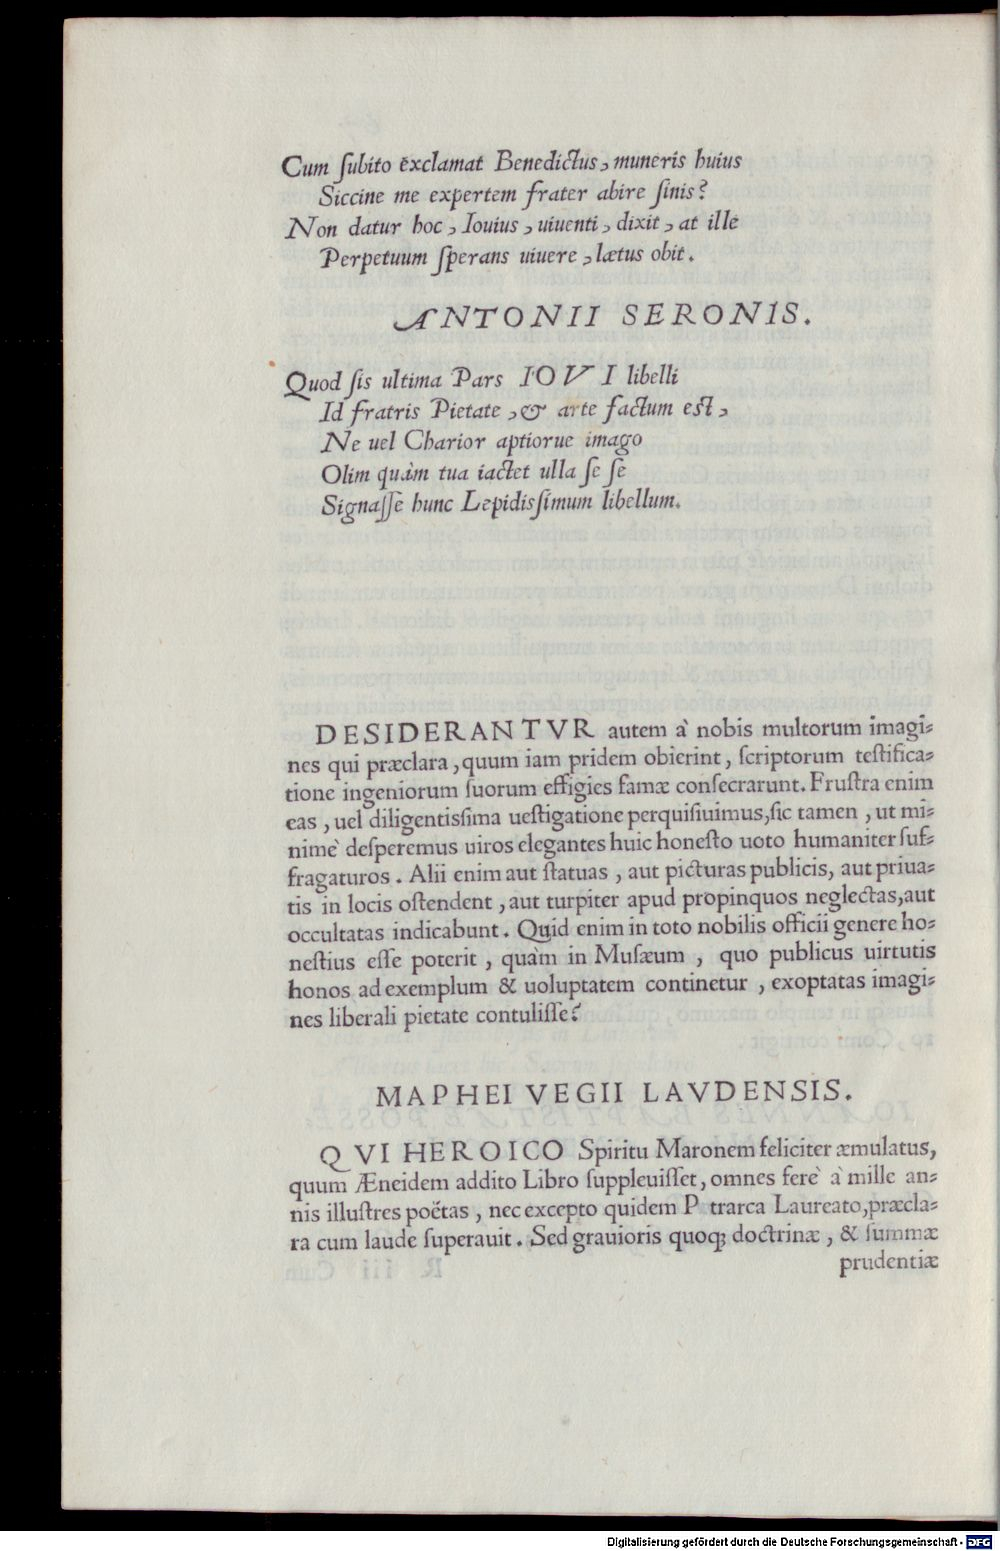 Cum ſubito exclamat Benedictus, muneris huius
Siccine me expertem frater abire ſinis?
Non datur hoc, Iouius, uiuenti, dixit, at ille
Perpetuum ſperans uiuere, lætus obit.
ANTONII SERONIS.
Quod ſis ultima Pars IOVI libelli
Id fratris Pietate, & arte factum eſt,
Ne uel Charior aptiorue imago
Olim quàm tua iactet ulla ſe ſe
Signaſſe hunc Lepidisſimum libellum.
DESIDERANTVR autem à nobis multorum imagi⸗
nes qui præclara, quum iam pridem obierint, ſcriptorum teſtifica⸗
tione ingeniorum ſuorum effigies famæ conſecrarunt. Fruſtra enim
eas, uel diligentisſima ueſtigatione perquiſiuimus, ſic tamen, ut mi⸗
nimè deſperemus uiros elegantes huic honeſto uoto humaniter ſuf⸗
fragaturos. Alii enim aut ſtatuas, aut picturas publicis, aut priua⸗
tis in locis oſtendent, aut turpiter apud propinquos neglectas, aut
occultatas indicabunt. Quid enim in toto nobilis officii genere ho⸗
neſtius eſſe poterit, quàm in Muſæum, quo publicus uirtutis
honos ad exemplum & uoluptatem continetur, exoptatas imagi⸗
nes liberali pietate contuliſſe?
MAPHEI VEGII LAVDENSIS.
QVI HEROICO Spiritu Maronem feliciter æmulatus,
quum Æneidem addito Libro ſuppleuiſſet, omnes ferè à mille an⸗
nis illuſtres poëtas, nec excepto quidem P trarca Laureato, præcla⸗
ra cum laude ſuperauit. Sed grauioris quoq; doctrinæ, & ſummæ
prudentiæ
Digitalisierung gefördert durch die Deutsche Forschungsgemeinschaft - DFG